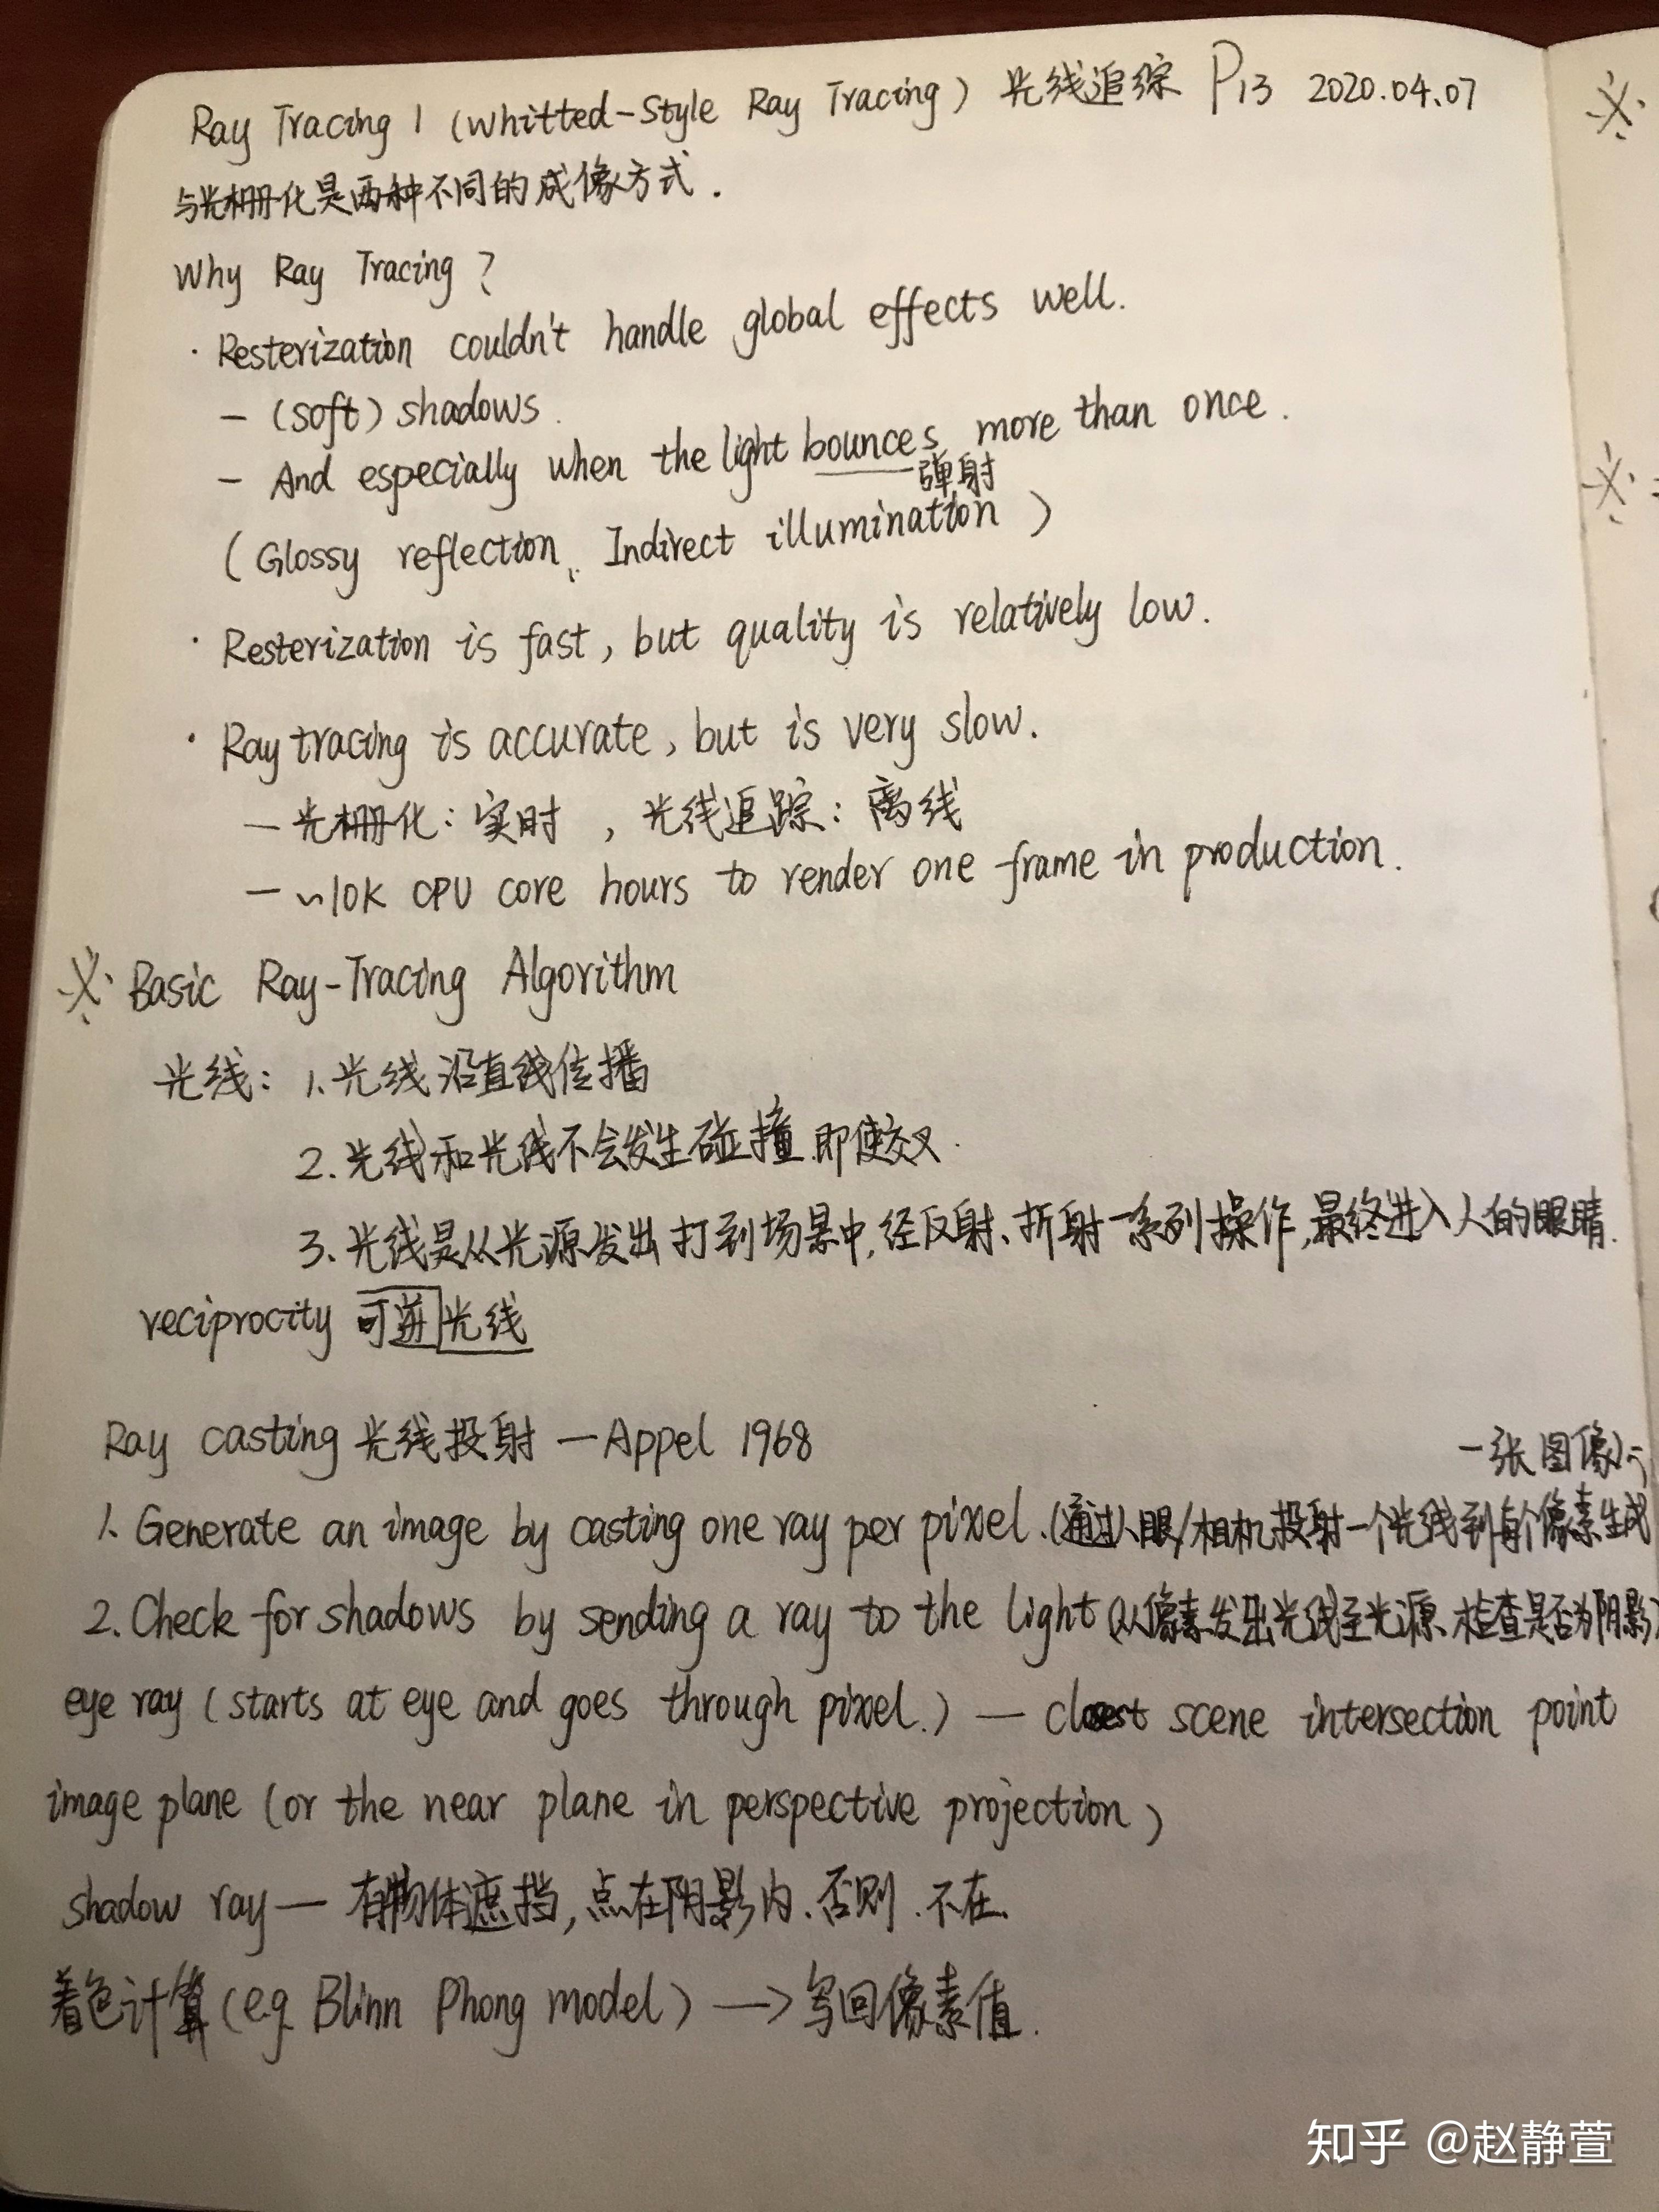 Ray Tracing 1 (Whitted-Style Ray Tracing) 光线追踪 P13 2020.04.07
与光栅化是两种不同的成像方式.
Why Ray Tracing?
· Resterization couldn't handle global effects well.
- (soft) shadows.
- And especially when the light bounces more than once.
弹射
(Glossy reflection、Indirect illumination)
· Resterization is fast, but quality is relatively low.
· Ray tracing is accurate, but is very slow.
- 光栅化: 实时, 光线追踪: 离线
- ~10K CPU core hours to render one frame in production.
※ Basic Ray-Tracing Algorithm
光线: 1.光线沿直线传播
2.光线和光线不会发生碰撞.即使交叉.
3.光线是从光源发出打到场景中,经反射、折射一系列操作,最终进入人的眼睛.
reciprocity 可逆光线
Ray casting 光线投射 —Appel 1968
一张图像
1. Generate an image by casting one ray per pixel.(通过人眼/相机投射一个光线到每个像素生成
2. Check for shadows by sending a ray to the light (从像素发出光线至光源、检查是否为阴影)
eye ray (starts at eye and goes through pixel.) — closest scene intersection point
image plane (or the near plane in perspective projection)
shadow ray — 有物体遮挡,点在阴影内.否则.不在.
着色计算(e.g. Blinn Phong model) —> 写回像素值.
知乎 @赵静萱